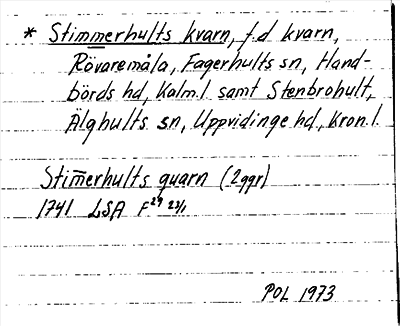 * Stimmerhults kvarn, f.d kvarn,
Rövaremåla, Fagerhults sn, Hand-
börds hd, Kalm.l. samt Stenbrohult,
Älghults sn, Uppvidinge hd, Kron.l.
Stim̅erhults quarn (2ggr)
1741 LSA F²⁹ 23/1
POL 1973